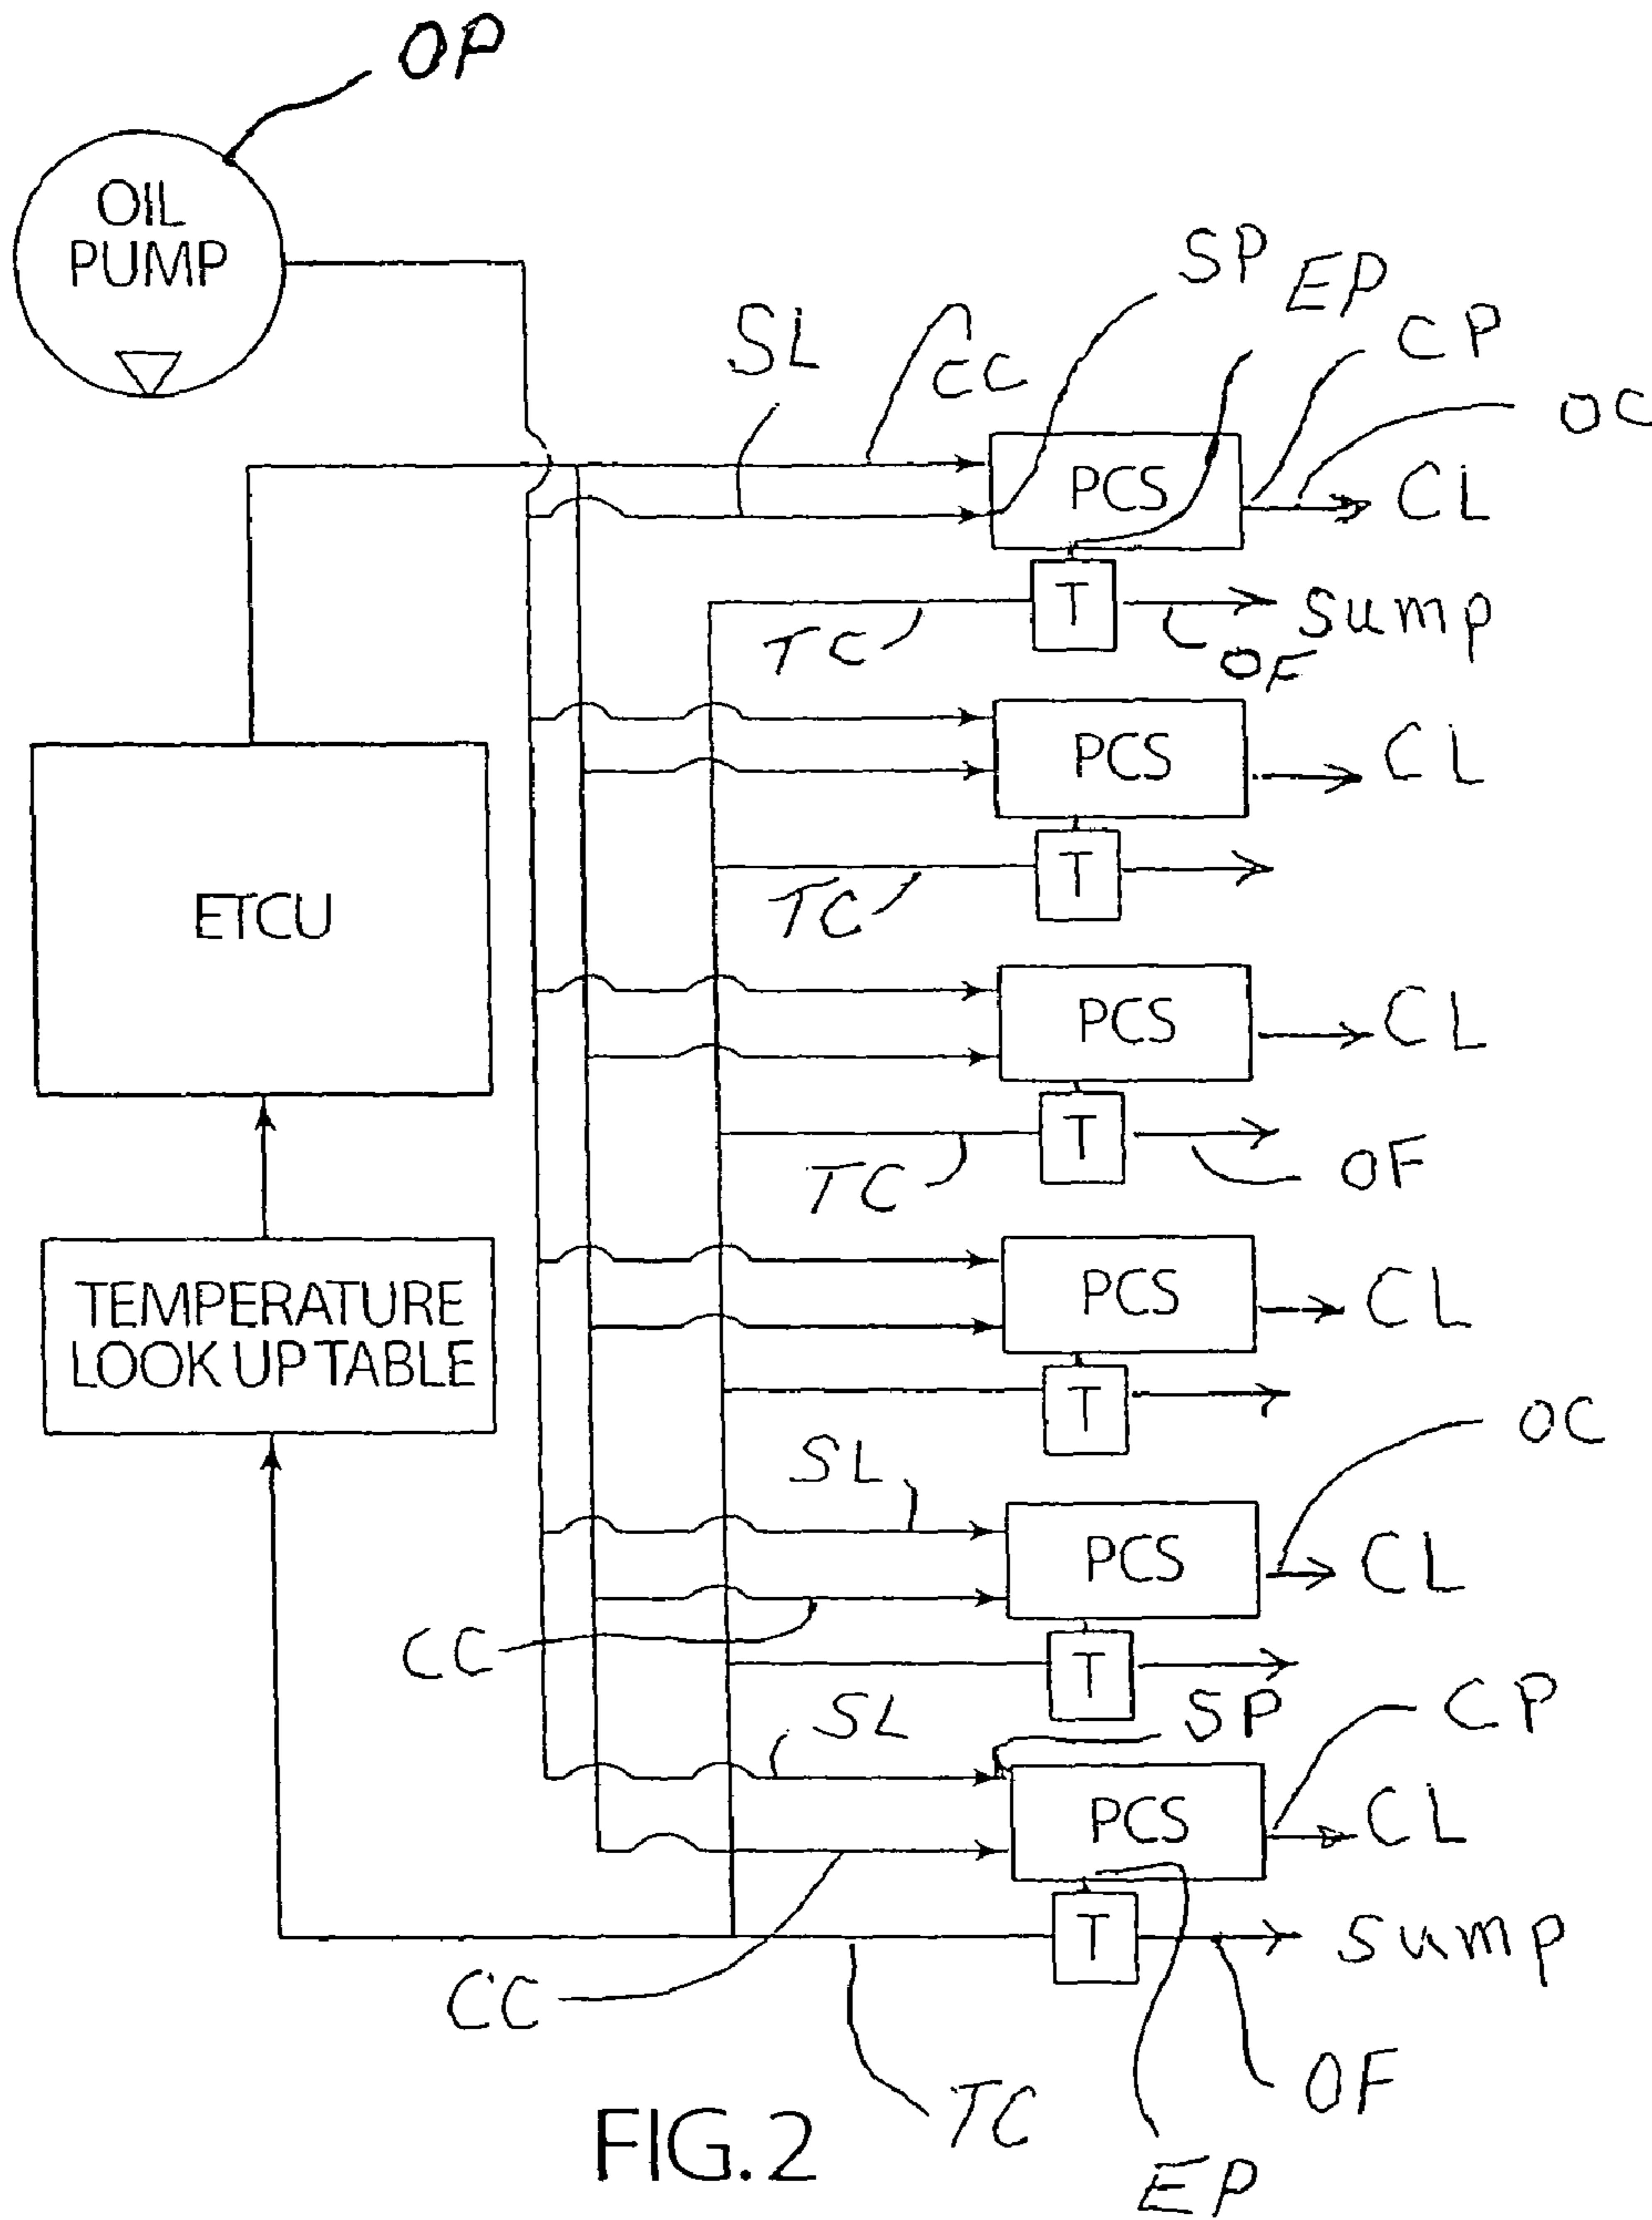 OP
OIL
PUMP
SP
EP
CP
SL
CC
OC
PCS
CL
T
Sump
TC
OF
PCS
CL
T
TC
ETCU
PCS
CL
T
TC
OF
TEMPERATURE
LOOK UP TABLE
PCS
CL
T
OC
SL
PCS
CL
CC
T
SL
SP
CP
PCS
CL
T
Sump
CC
TC
OF
EP
FIG. 2